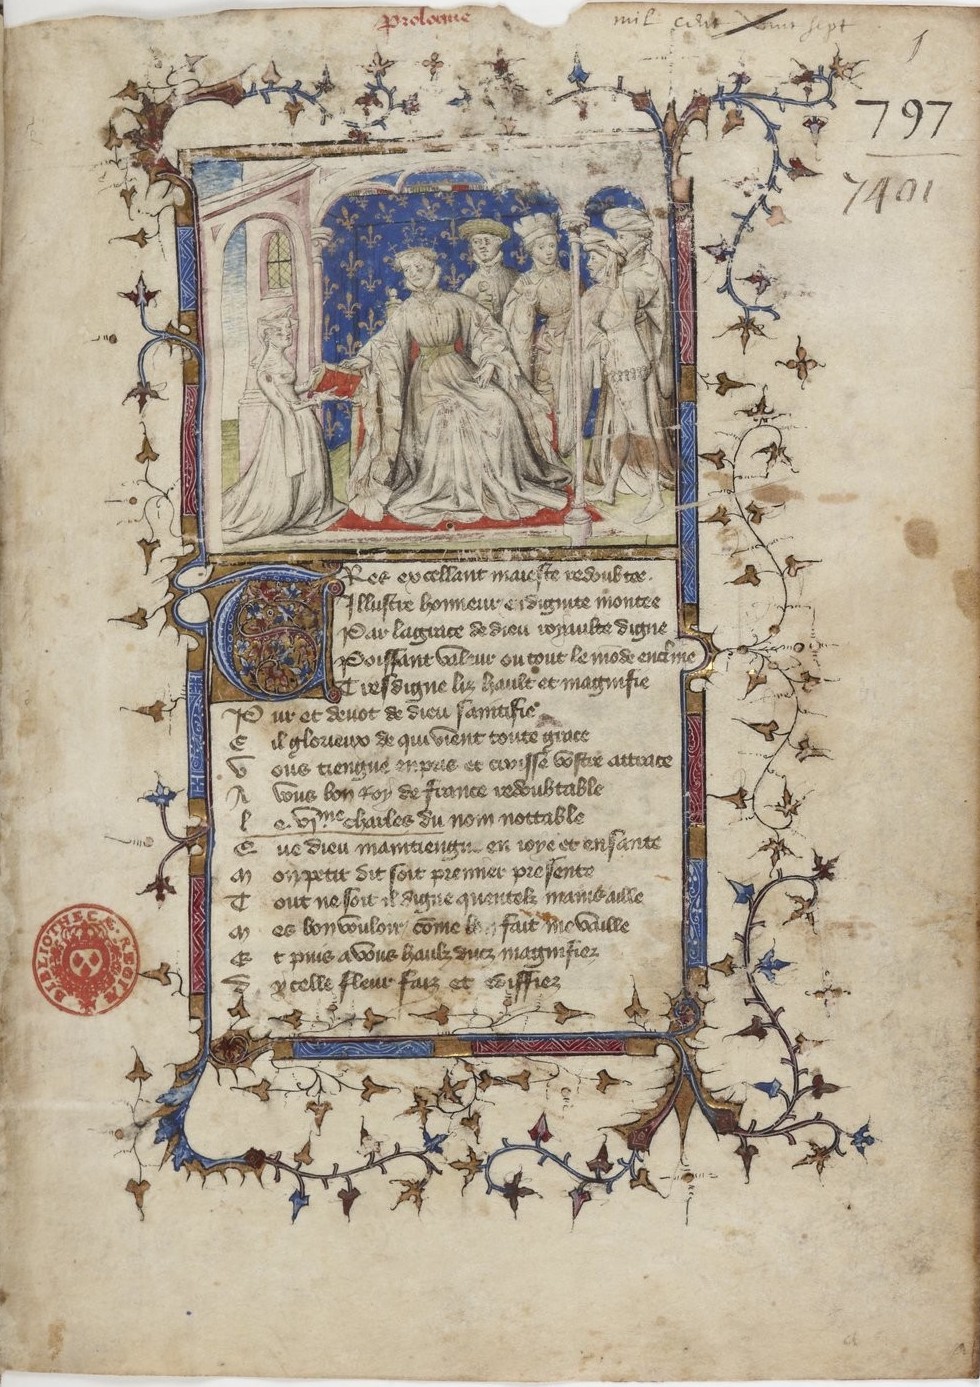 prologue
mil cent vint sept
1
797
7401
Tres excellant maieste redoubtee.
Illustre honneur et dignite montee
Par la grace de dieu royaulte digne
Poissant valeur ou tout le mõde encline
Tres digne liz hault et magnifie
Pur et devot de dieu saintifie
Cil glorieux de qui vient toute grace
Vous tiengne en pris et croisse vostre attrace
A vous bon Roy de france redoubtable
le .vjme charles du nom nottable
Que dieu maintiengne en ioye et en sante
Mon petit dit soit premier presente
Tout ne soit il digne quentelz mains aille
Mes bon vouloir cõme bon fait me vaille
Et puis a vous haulz ducz magnifiez
Dycelle fleur faiz et ediffiez
BIBLIOTHECÆ REGIÆ